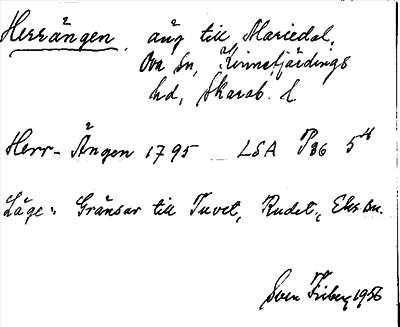 Herrängen, äng till Mariedal,
Ova sn, Kinnefjärdings
hd, Skarab. l.
Herr-Ängen 1795 LSA P86 5⁴
Läge: Gränsar till Tuvet, Rudet, Eks sn.
Sven Friberg 1956